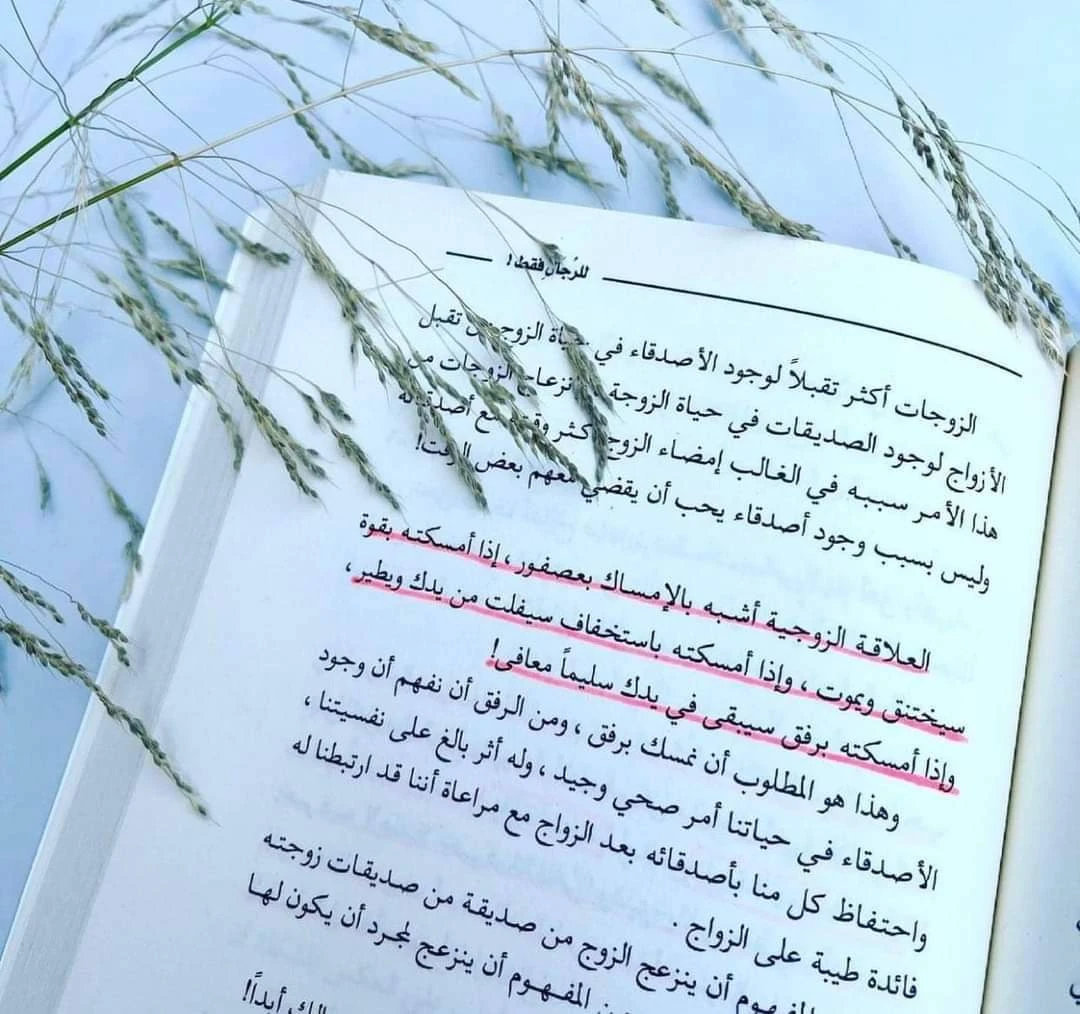 للرجال فقط!
الزوجات أكثر تقبلاً لوجود الأصدقاء في حياة الزوج من تقبل
الأزواج لوجود الصديقات في حياة الزوجة وانزعاج الزوجات من
هذا الأمر سببه في الغالب إمضاء الزوج أكثر وقته مع أصدقائه
وليس بسبب وجود أصدقاء يحب أن يقضي معهم بعض الوقت!
العلاقة الزوجية أشبه بالإمساك بعصفور، إذا أمسكته بقوة
سيختنق ويموت، وإذا أمسكته باستخفاف سيفلت من يدك ويطير،
وإذا أمسكته برفق سيبقى في يدك سليماً معافى!
وهذا هو المطلوب أن نمسك برفق، ومن الرفق أن نفهم أن وجود
الأصدقاء في حياتنا أمر صحي وجيد، وله أثر بالغ على نفسيتنا،
واحتفاظ كل منا بأصدقائه بعد الزواج مع مراعاة أننا قد ارتبطنا له
فائدة طيبة على الزواج.
المفهوم أن ينزعج الزوج من صديقة من صديقات زوجته
المفهوم أن ينزعج لمجرد أن يكون لها
أبداً!